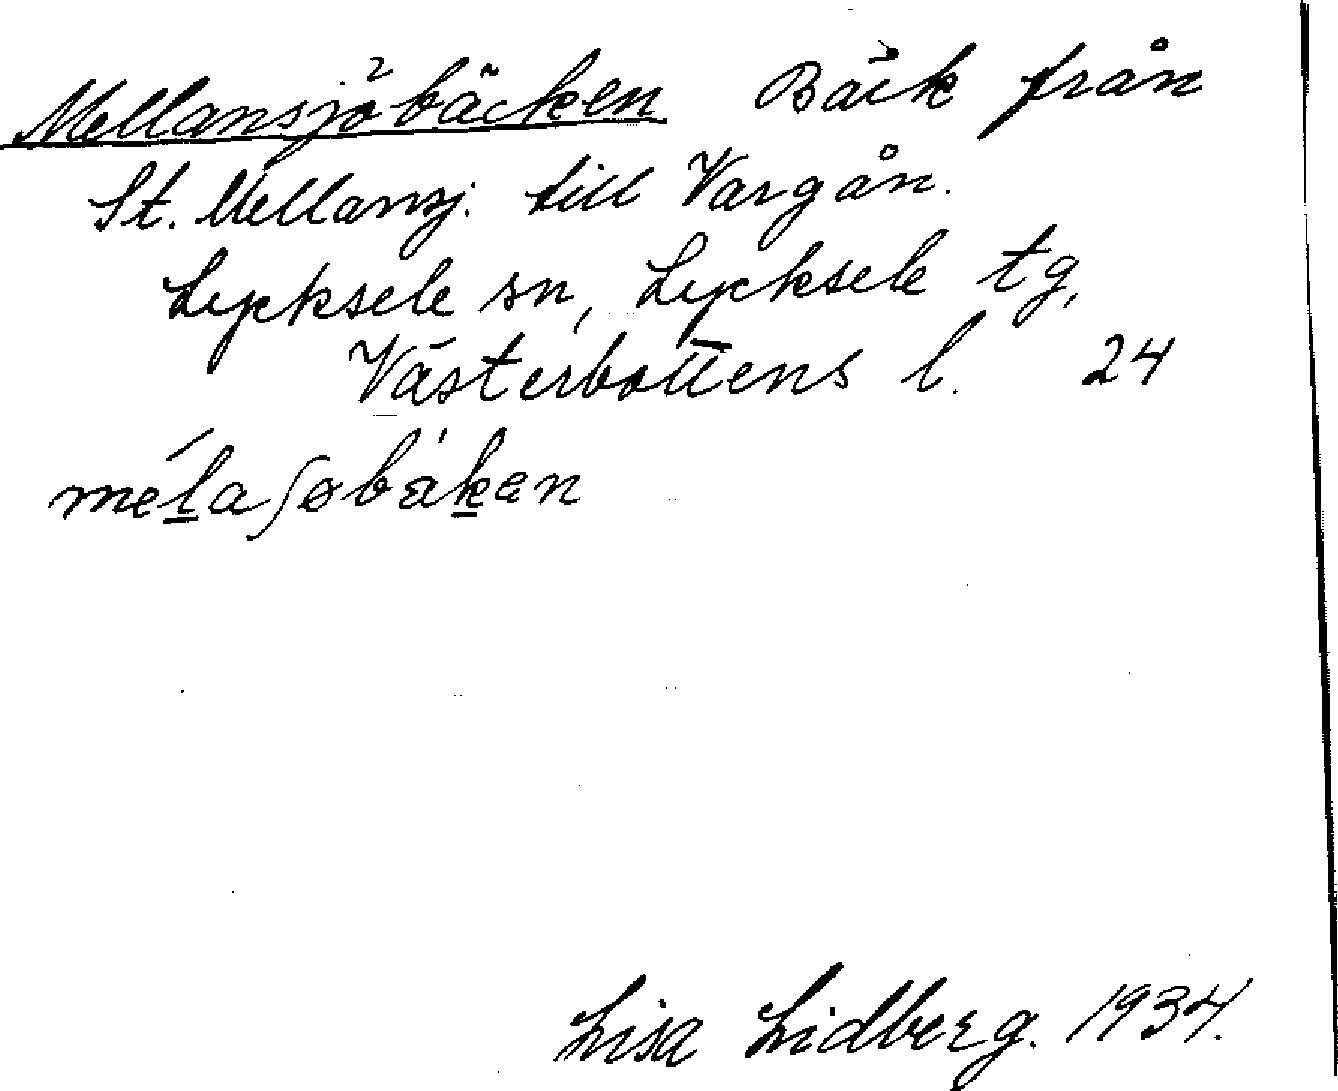 Mellansjöbäcken Bäck från
St. Mellansj. till Vargån.
Lycksele sn, Lycksele tg,
Västerbottens l. 24
mélaʃøbäkən
Lisa Lidberg. 1934.